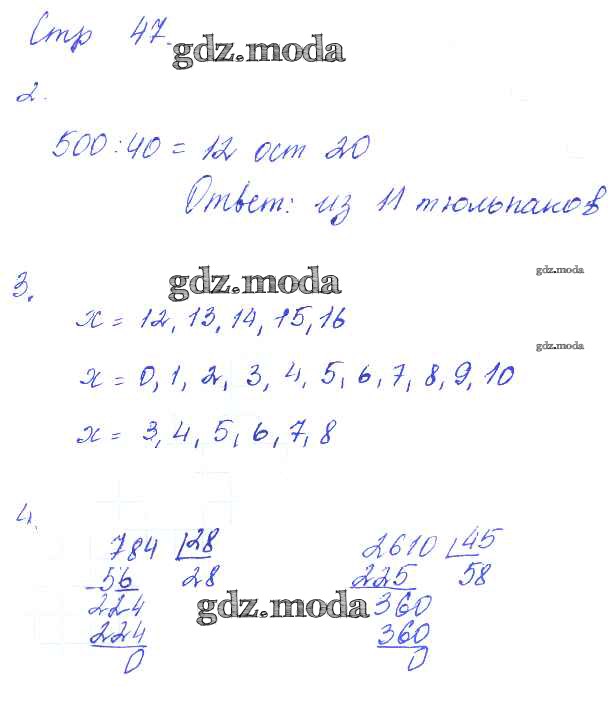 Стр 47.
gdz.moda
2.
500 : 40 = 12 ост 20
Ответ: из 11 тюльпанов
3.
gdz.moda
gdz.moda
x = 12, 13, 14, 15, 16
gdz.moda
x = 0, 1, 2, 3, 4, 5, 6, 7, 8, 9, 10
x = 3, 4, 5, 6, 7, 8
4.
784 28 2610 45
56 28 225 58
gdz.moda
224 360
224 360
0 0